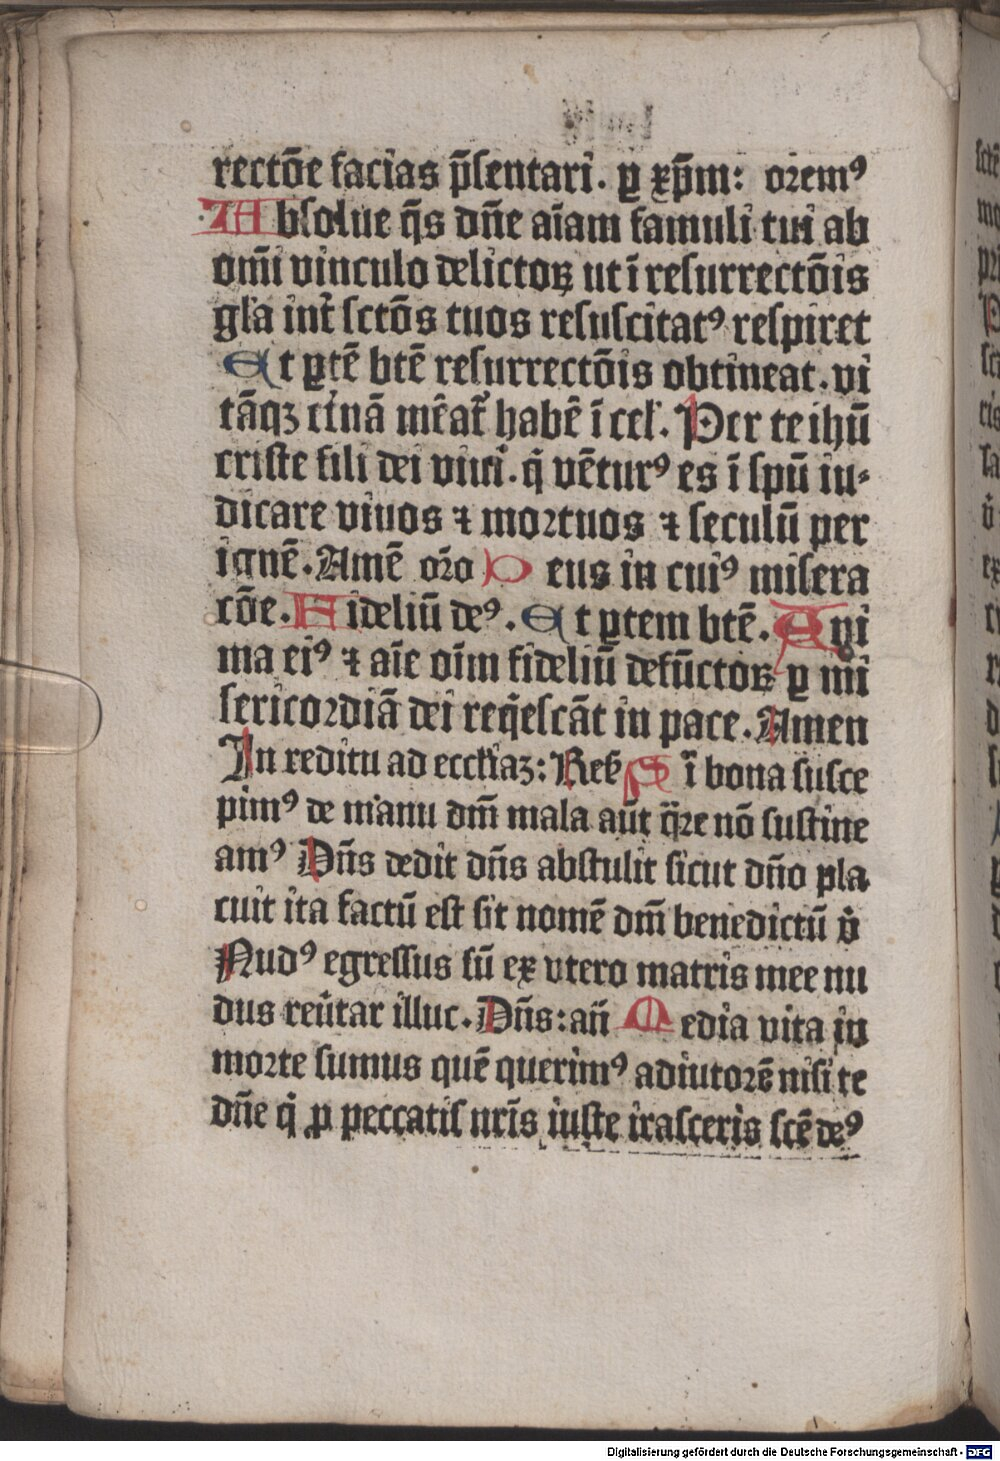 rectōe facias p̄sentari. ꝑ xp̄m: oremꝰ
Absolue q̄s dn̄e aīam famuli tui ab
om̄i vinculo delictoꝝ ut ī resurrectōis
gl'a int̄ sctōs tuos resuscitatꝰ respiret
Et ꝑtē btē resurrectōis obtineat. vi
tāqꝫ et'nā mēat᷑ habē ī cel'. Per te ihū
criste fili dei viui. q̇ vēturꝰ es ī spū iu-
dicare viuos ⁊ mortuos ⁊ seculū per
ignē. Amē or̄o Deus in cuiꝰ misera
cōe. Fideliū deꝰ. Et ꝑtem btē. Ayi
ma eiꝰ ⁊ aīe oīm fideliū defūctoꝝ ꝑ mi
sericordiā dei reqͥescāt in pace. Amen
In reditu ad eccl'iaꝫ: Res̄ Sī bona susce
pimꝰ de manu dm̄ mala aūt q̄re nō sustine
amꝰ Dn̄s dedit dn̄s abstulit sicut dn̄o pla
cuit ita factū est sit nomē dm̄ benedictū v̊
Nudꝰ egressus sū ex vtero matris mee nu
dus reūtar illuc. Dn̄s: an̄ Media vita in
morte sumus quē querimꝰ adiutorē nisi te
dn̄e q̇ ꝓ peccatis nr̄is iuste irasceris scē deꝰ
Digitalisierung gefördert durch die Deutsche Forschungsgemeinschaft - DFG